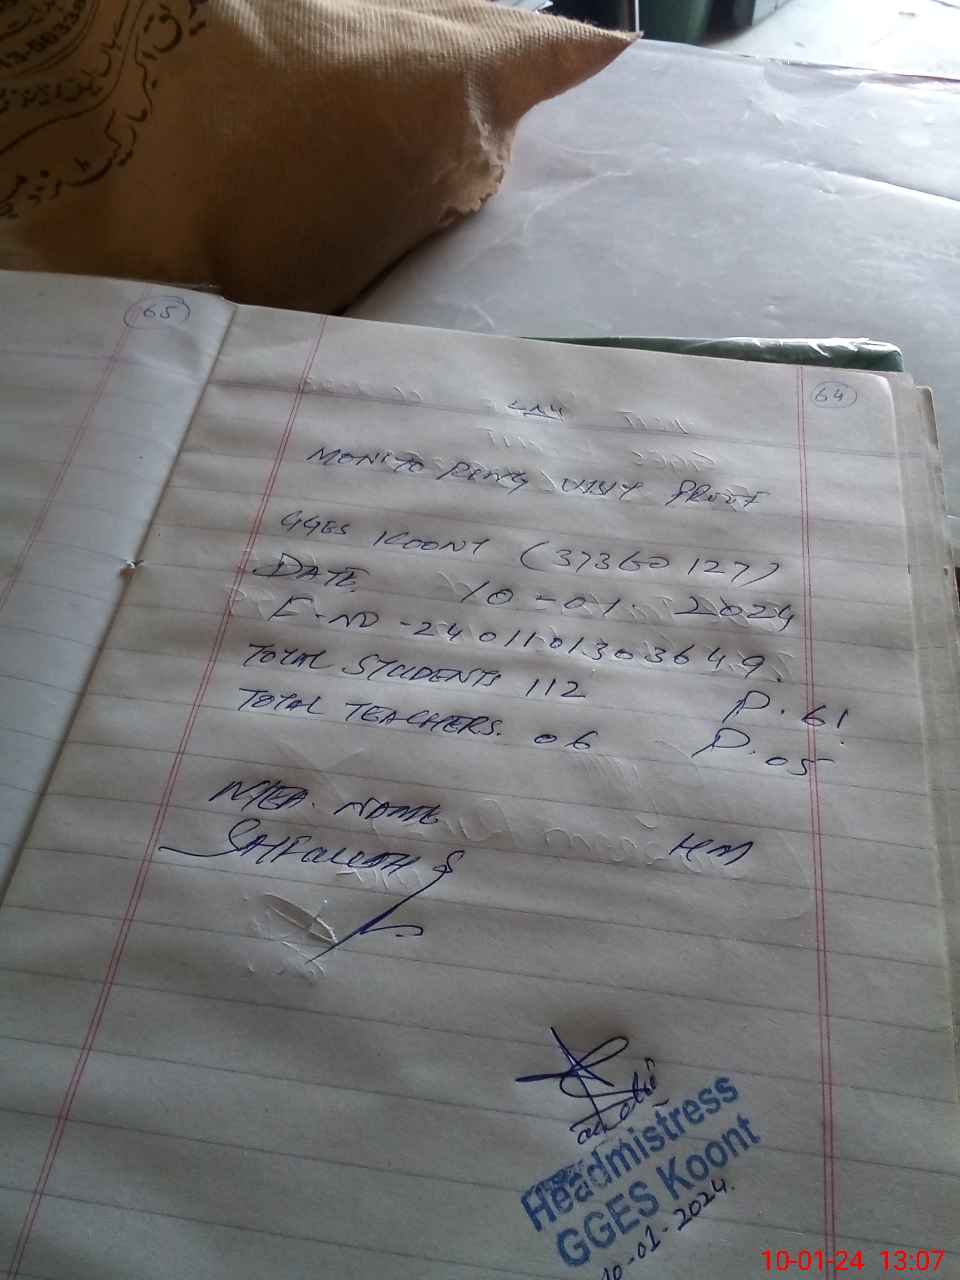 65
64
MONITORING VISIT PROOF
GGES KOONT (37360127)
DATE 10-01-2024
F-NO-2401101303649.
TOTAL STUDENTS 112 P. 61
TOTAL TEACHERS. 06 P. 05
MEA. NAME HM
SAIFULLAH
Headmistress
GGES Koont
10-01-2024.
10-01-24 13:07